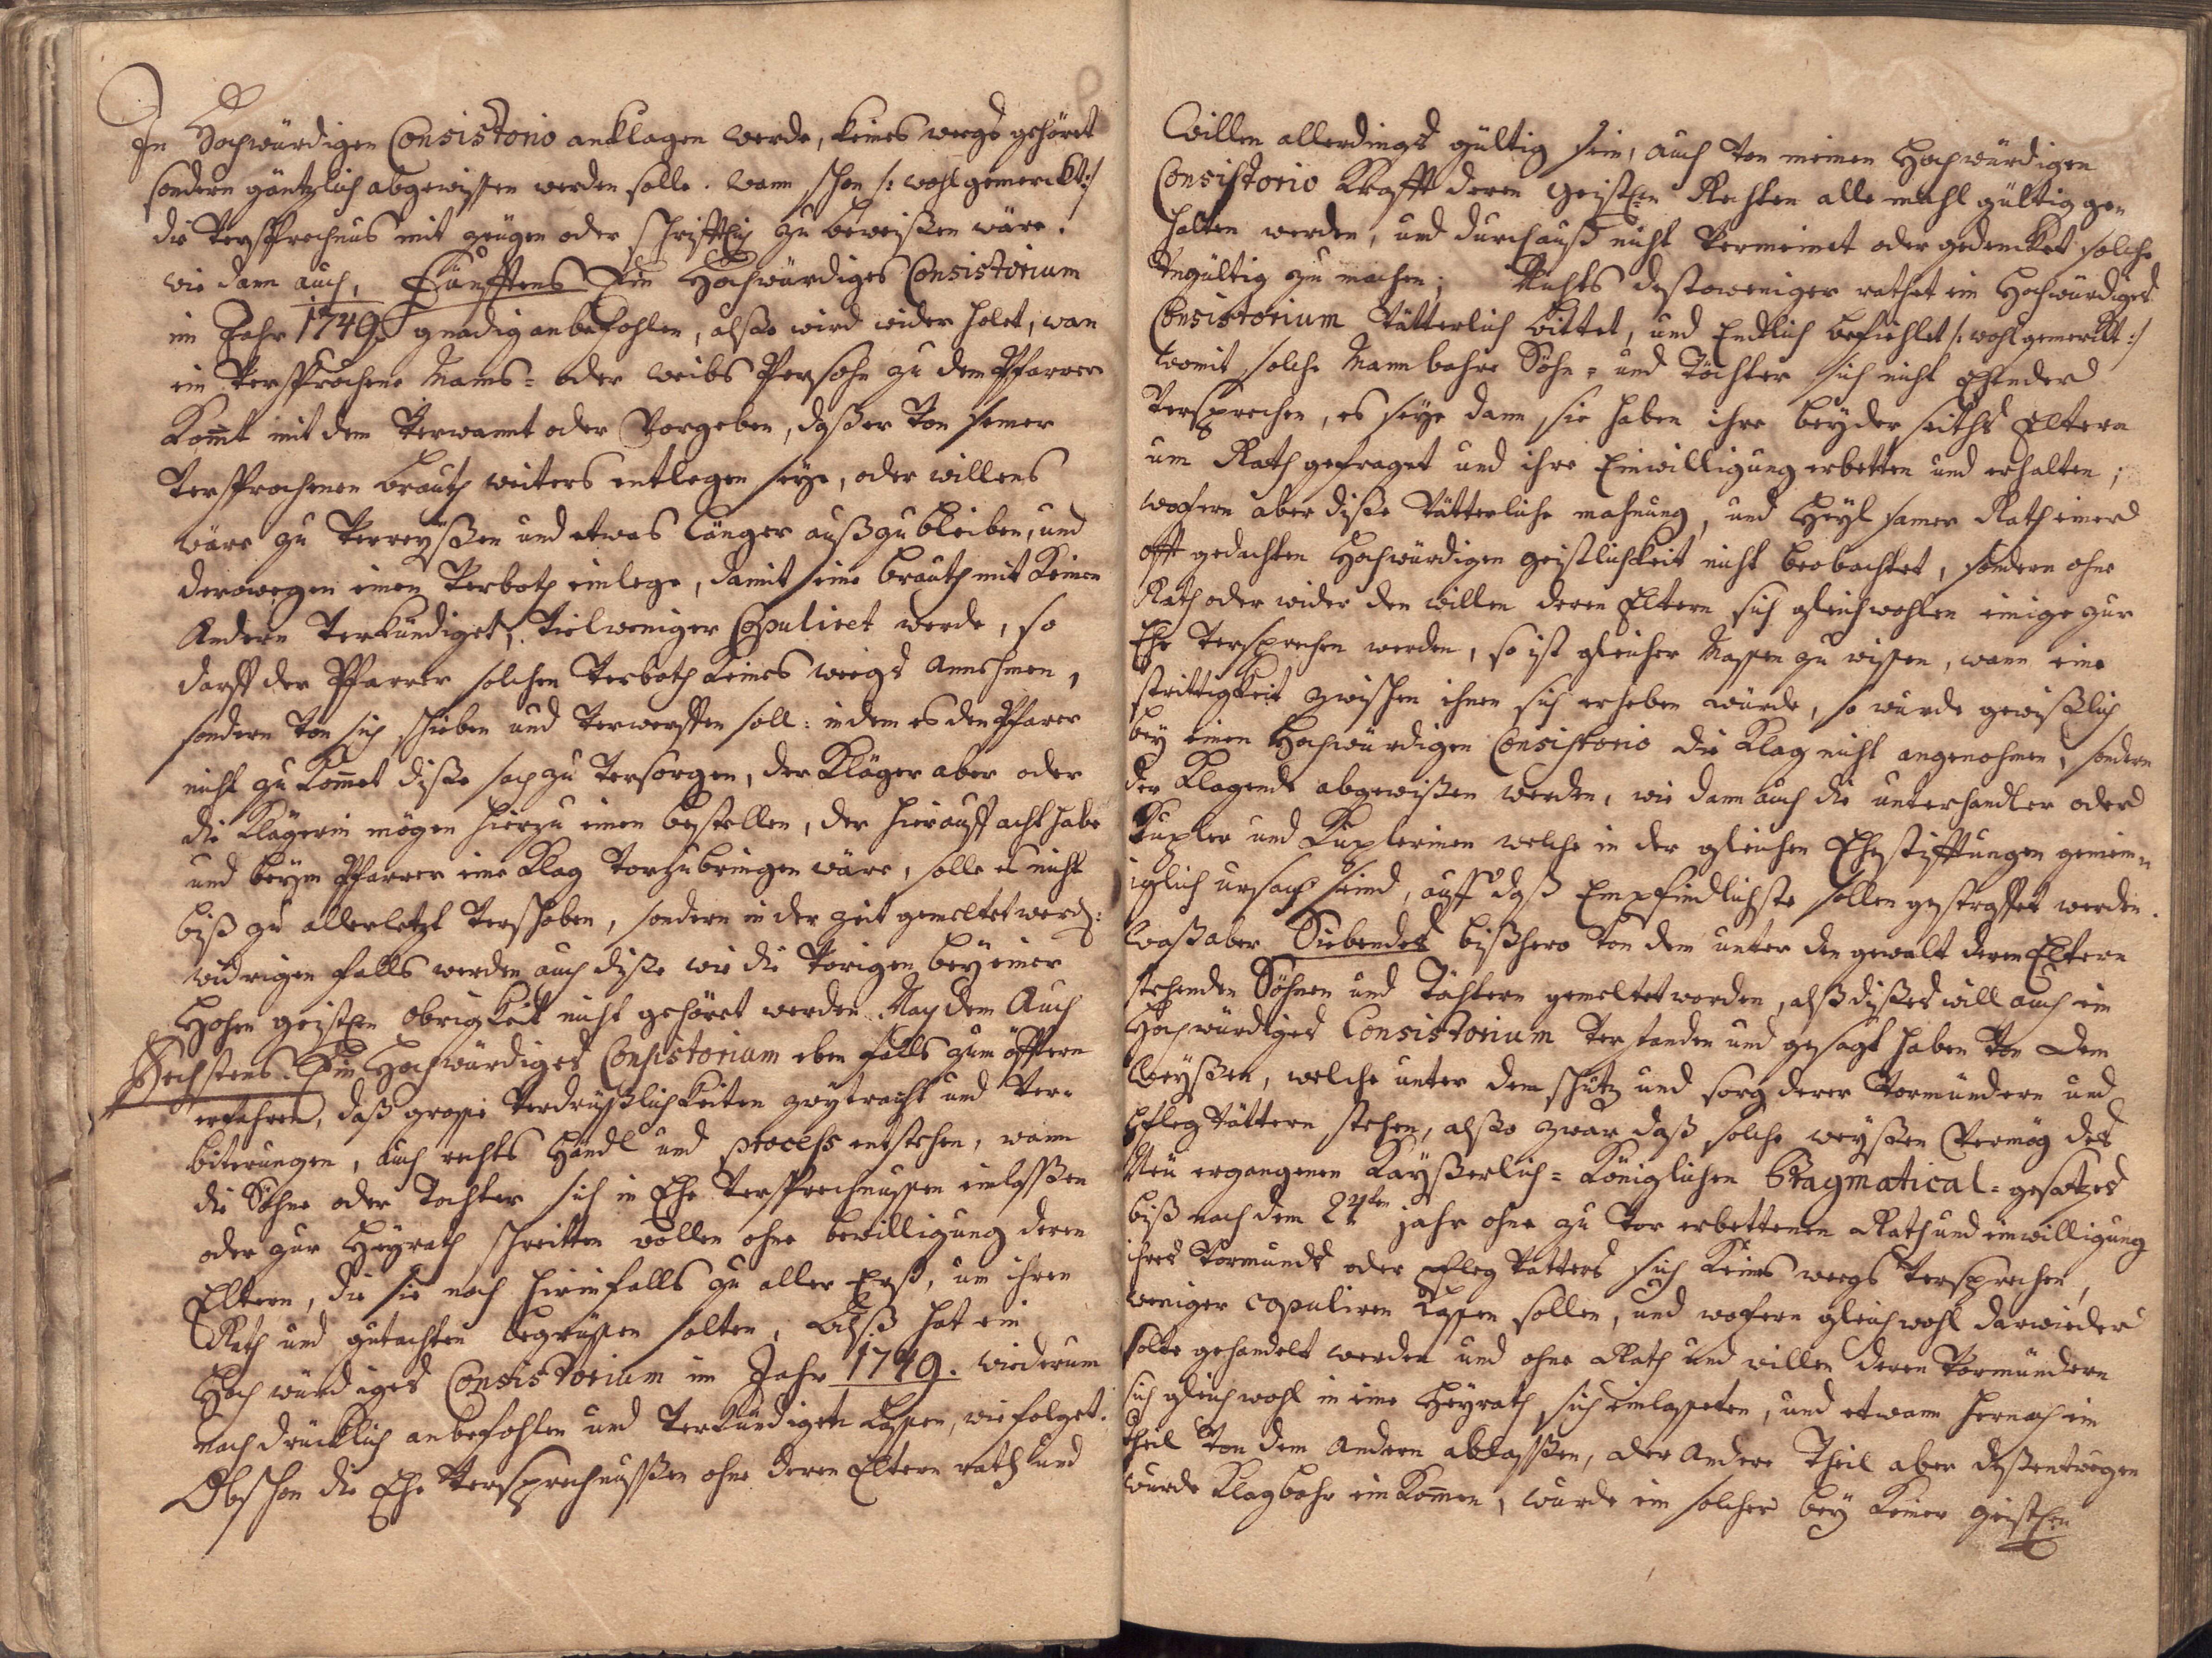 In Hochwürdigen Consistorio anklagen werde, keines weegs gehöret
sondern gäntzlich abgewissen werden solle. wann schon /: wohl gemerckt :/
die Versprechnus mit zeugen oder schrifftlich zu beweißen wäre.
wie dann auch, Fünfftens Ein Hochwürdiges Consistorium
im Jahr 1749. gnädig anbefohlen, alßo wird wider holet, wan
ein Versprochene Manns= oder weibs Persohn zu dem Pfarrer
kom̄t mit dem Verwannt oder Vorgeben, daß er Von seiner
Versprochenen brauth weiters entlegen seye, oder willens
wäre zu Verreyßen und etwas länger außzubleiben, und
derowegen einen Verboth einlege, damit seine brauth mit keinen
Andern Verkündiget, Vielweniger Copuliret werde, so
darff der Pfarrer solchen Verboth keines weegs Annehmen,
sondern Von sich schieben und Verwerffen soll: in dem es den Pfarer
nicht zu kom̄et diße sach zu Versorgen, der Kläger aber oder
die Klägerin mögen hierzu einen bestellen, der hierauff acht habe
und beym Pfarrer eine Klag Vorzubringen wäre, solle es nicht
biß zu allerletzt Verschoben, sondern in der zeit gemeltet werd:
widrigen falls werden auch diße wie die Vorigen bey einer
Hohen geistlen obrigkeit nicht gehöret werden. Nach dem Auch
Sechstens. Ein Hochwürdiges Consistorium eben falls zum öfftern
erfahren, daß grosse Verdrüßlichkeiten zwytracht und Ver-
biterungen, auch rechts Händl und process entstehen, wann
die Söhne oder Tochter sich in Ehe Versprechnussen einlaßßen
oder zur Heyrath schreitten wollen ohne bewilligung deren
Eltern, die sie noch hirinfalls zu aller Erst, um ihren
Rath und gutachten begrüssen solten, Alß hat ein
Hochwürdiges Consistorium im Jahr 1749. wiederum
nachdrücklich anbefohlen und Verkündigen lassen, wie folget.
Obschon die Ehe Versprechnußßen ohne deren Eltern rath und
Willen allerdings gültig sein, auch Von meinen Hochwürdigen
Consistorio Krafft deren geistlen Rechten alle mahl gültig ge-
halten werden, und durchauß nicht Vermeinet oder gedencket solche
Ungültig zu machen; Nichts destoweniger rathet ein Hochwürdiges
Consistorium Vätterlich bittet, und Endlich befiehlet /: wohl gemerckt :/
womit solche Mannbahre Söhn= und Töchter sich nicht Ehender
Versprechen, es seye dann, sie haben ihre beyder seiths Eltern
um Rath gefraget und ihre Einwilligung erbetten und erhalten;
wofern aber diße Vätterliche mahnung, und Heyl samer Rath einer
offt gedachten Hochwürdigen geistlichkeit nicht beobachtet, sondern ohne
Rath oder wider den willen deren Eltern sich gleichwohlen einige zur
Ehe Versprechen werden, so ist gleicher Massen zu wissen, wann eine
strittigkeit zwischen ihnen sich erheben würde, so wurde gewißlich
bey einen Hochwürdigen Consistorio die Klag nicht angenohmen, sondern
der Klagende abgewißen werden, wie dann auch die unterhandler oder
Kupler und Kuplerinen welche in der gleichen Ehestifftungen gemein-
iglich ursach seind, auff daß Empfindlichste sollen gestraffet werden.
Waß aber Siebendes bißhero Von dem unter den gewalt deren Eltern
stehenden Söhnen und Töchtern gemeltet worden, alß dißes will auch ein
Hochwürdiges Consistorium Verstanden und gesagt haben Von dem
Weyßen, welche unter dem schutz und sorg derer Vormündern und
Pfleg Vättern stehen, alßo zwar daß solche weyßen Vermög des
Neu ergangenen Kayßerlich=Königlichen Pragmatical=gesatzes
biß nach dem 24ten jahr ohne zu Vor erbettenen Rath und einwilligung
ihres Vormunds oder Pfleg Vatters sich keines weegs Versprechen,
weniger copuliren lassen sollen, und wofern gleichwohl darwieder
solte gehandelt werden und ohne Rath und willen deren Vormündern
sich gleichwohl in eine Heyrath sich einlasseten, und etwann hernach ein
Theil Von dem Andern ablaßßen, der Andere Theil aber deßentwegen
wurde Klagbahr einkom̄en, wurde ein solcher bey keiner geistlen